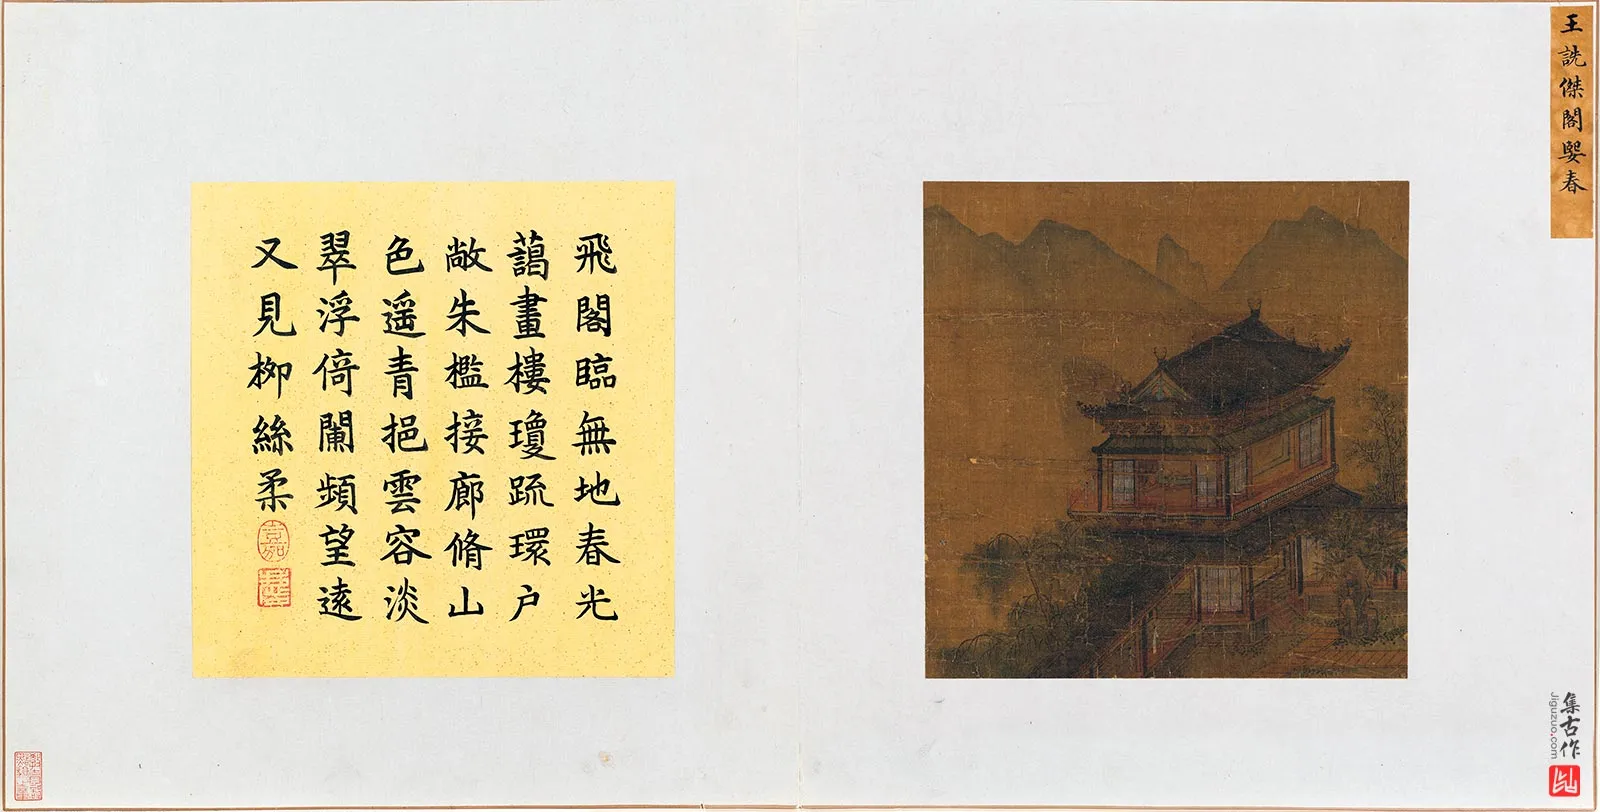 王詵傑閣嬰春
飛閣臨無地春光
藹畫樓瓊疏環户
敞朱檻接廊脩山
色遥青挹雲容淡
翠浮倚闌頻望遠
又見栁絲柔
集古作
Jiguzuo.com